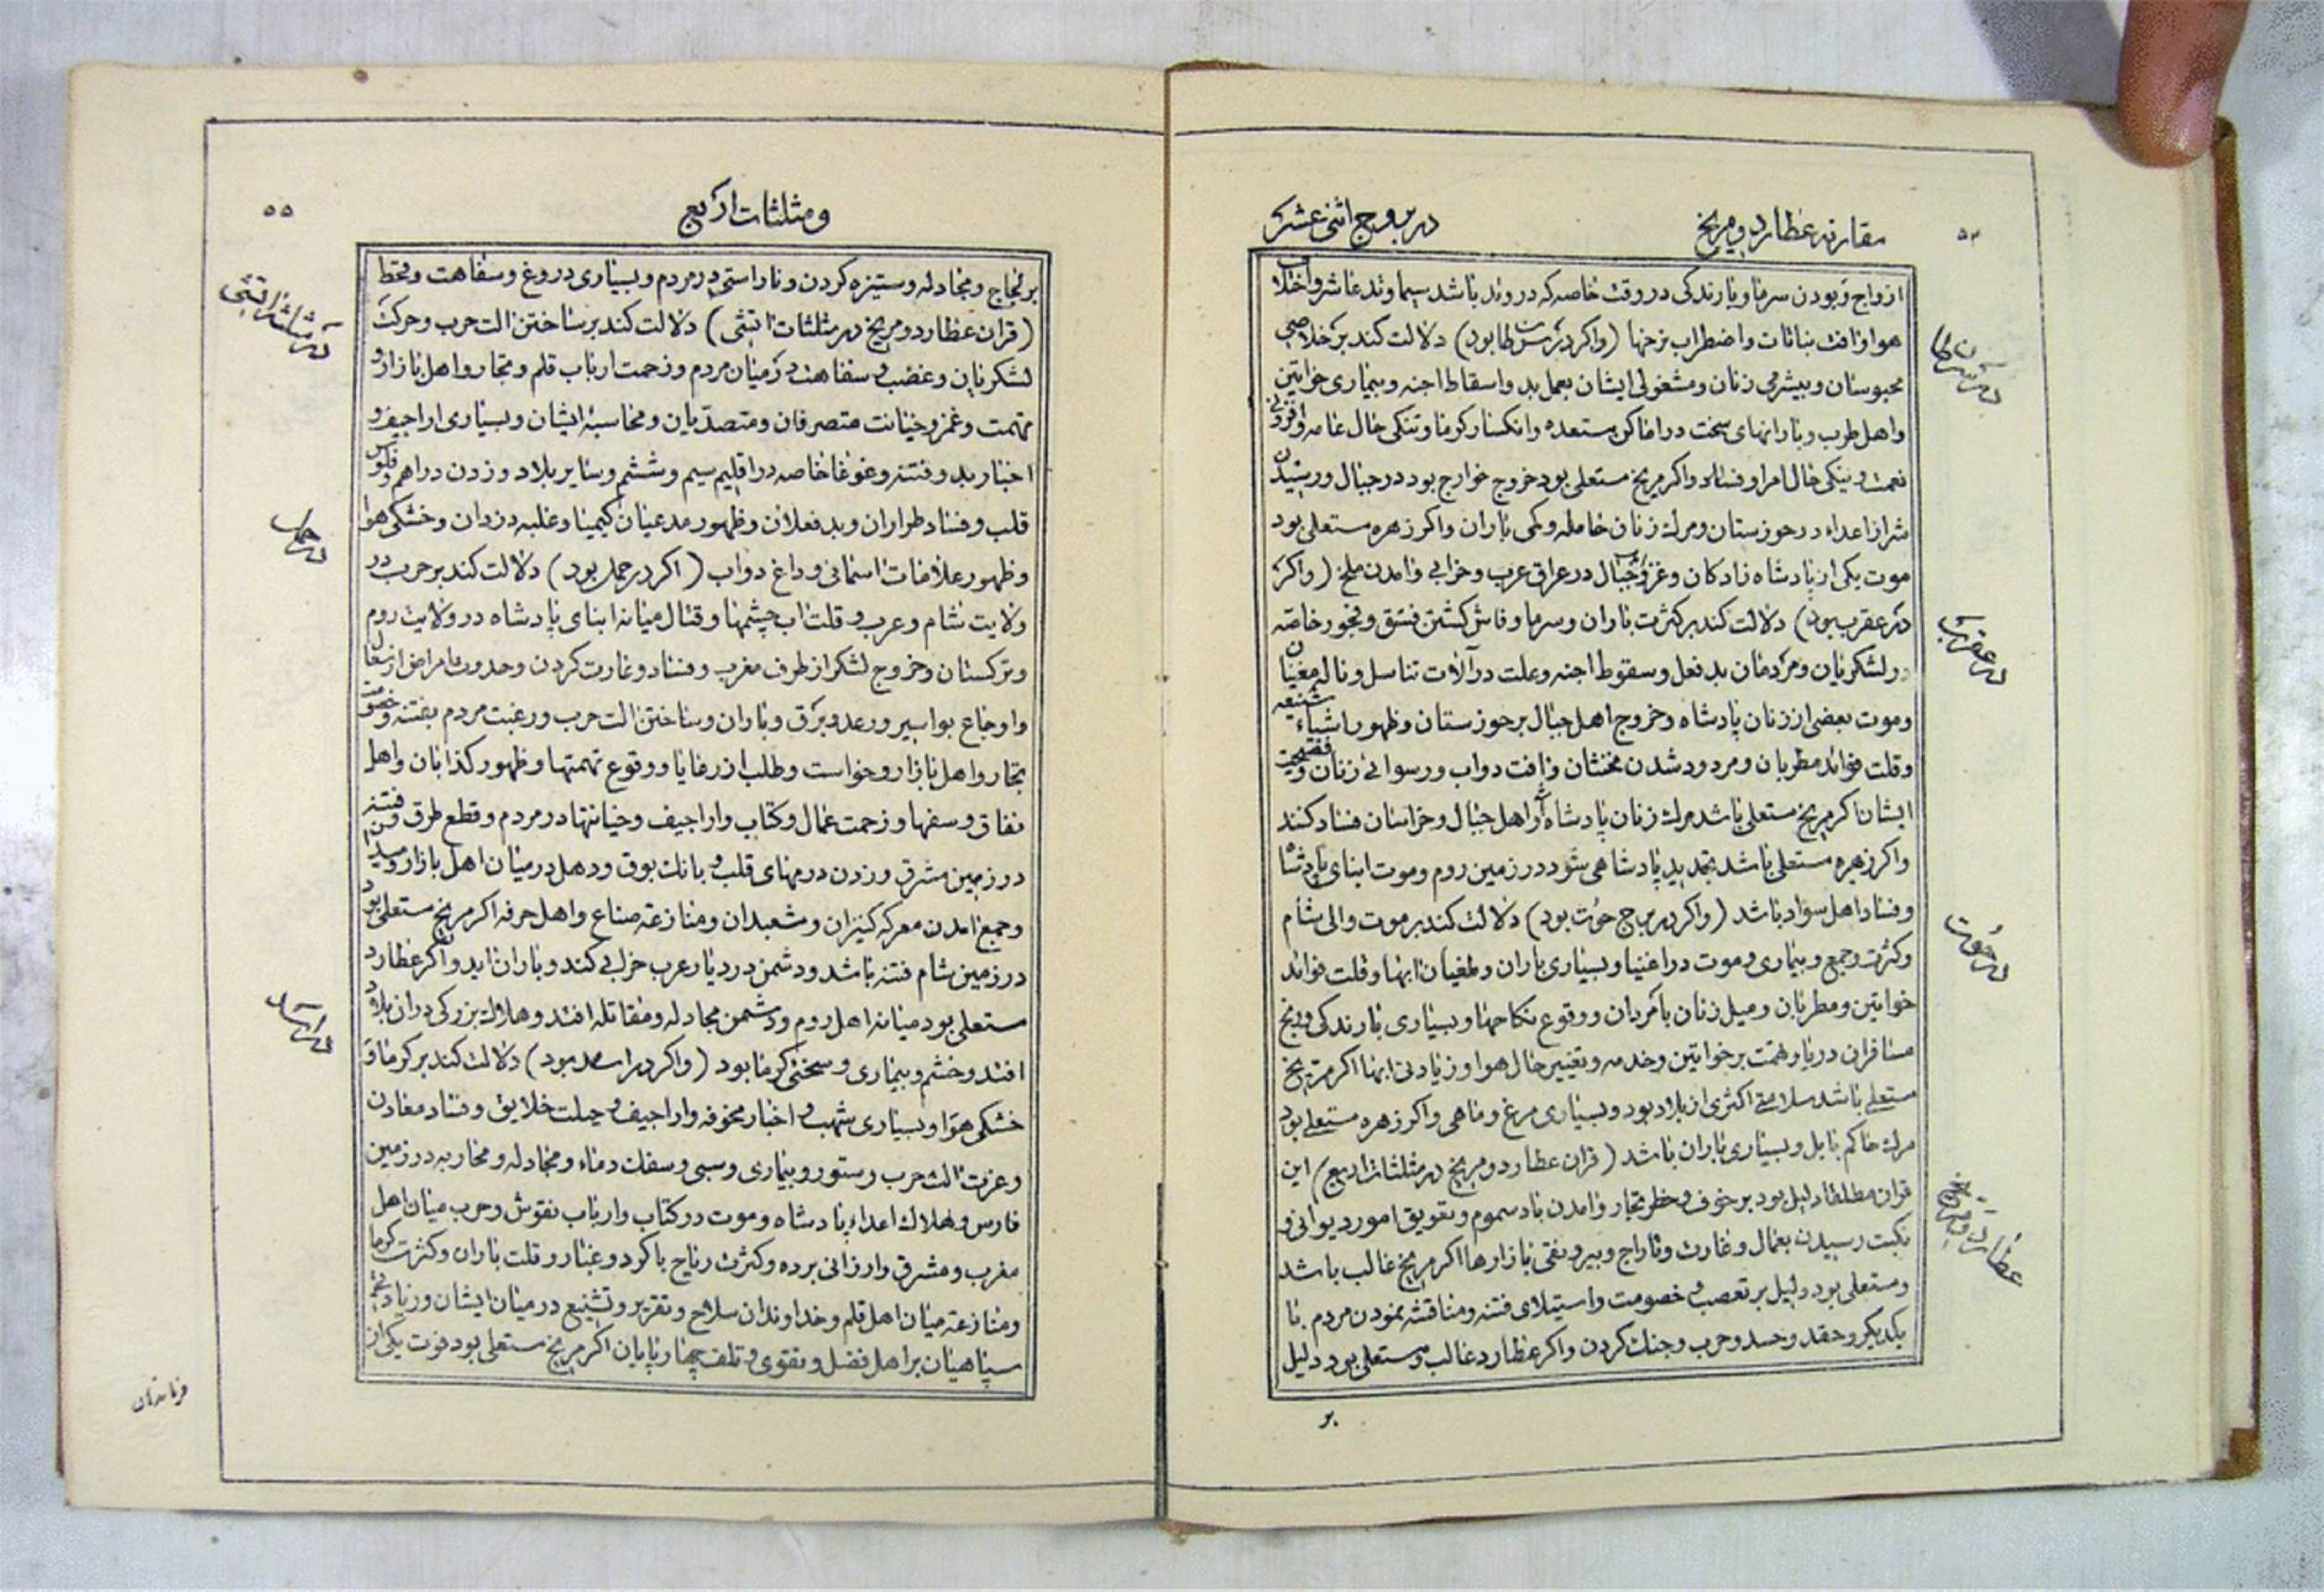 مقارنه عطارد و مریخ
در بروج اثنی عشر
ازواج و بودن سرما و بارندگی در وقت خاصه که در وتد باشد سیما وتد عاشر و اختلاف
هوا و افت نباتات و اضطراب نرخها (واکر در سرطان بود) دلالت کند بر خلاصی
محبوسان و بیشرمی زنان و مشغولی ایشان بعمل بد و اسقاط اجنه و بیماری خواتین
و اهل طرب و بارانهای سخت در اماکن مستعده و انکسار کرما و تنکی حال عامه و افزونی
نعمت و نیکی حال امرا و فساد واکر مریخ مستعلی بود خروج خوارج بود در جبال و رسیدن
شر از اعداء در خوزستان و مرک زنان حامله و کمی باران واکر زهره مستعلی بود
موت یکی از پادشاه زادکان و غزو جبال در عراق عرب و خرابی و امدن ملخ (واکر
در عقرب بود) دلالت کند بر کثرت باران و سرما و فاش کشتن فسق و فجور خاصه
در لشکریان و مردمان بد فعل و سقوط اجنه و علت در آلات تناسل و ناله مغنیان
و موت بعضی از زنان پادشاه و خروج اهل جبال بر خوزستان و ظهور اشیاء شنیعه
و قلت فوائد مطربان و مردود شدن مخنثان و افت دواب و رسوائی زنان و فضیحت
ایشان اکر مریخ مستعلی باشد مرک زنان پادشاه و از اهل جبال و خراسان فساد کنند
واکر زهره مستعلی باشد تجدید پادشاهی شود در زمین روم و موت ابنای پادشاه
و فساد اهل سواد باشد (واکر در برج حوت بود) دلالت کند بر موت والی شام
و کثرت وجع و بیماری و موت در اغنیا و بسیاری باران و طغیان ابها و قلت فوائد
خواتین و مطربان و میل زنان بامردان و وقوع نکاحها و بسیاری بارندکی و رنج
مسافران دریا و تهمت بر خواتین و خدمه و تغییر حال هوا و زیادتی ابها اکر مریخ
مستعلی باشد سلامتی اکثری از بلاد بود و بسیاری مرغ و ماهی واکر زهره مستعلی بود
مرک حاکم بابل و بسیاری باران باشد (قران عطارد و مریخ در مثلثات اربع) این
قران مطلقا دلیل بود بر خوف و خطر تجار و امدن باد سموم و تعویق امور دیوانی و
نکبت رسیدن بعمال و غارت و تاراج و بیرونقی بازارها اکر مریخ غالب باشد
و مستعلی بود دلیل بر تعصب و خصومت و استیلای فتنه و مناقشه نمودن مردم با
یکدیکر و حقد و حسد و حرب و جنک کردن واکر عطارد غالب و مستعلی بود دلیل
در سرطان
در عقرب
در حوت
بر
و مثلثات اربع
۵۵
بر لجاج و مجادله و ستیزه کردن و ناراستی در مردم و بسیاری دروغ و سفاهت و قحط
(قران عطارد و مریخ در مثلثات اتشی) دلالت کند بر ساختن الت حرب و حرکت
لشکریان و غضب و سفاهت در میان مردم و زحمت ارباب قلم و تجار و اهل بازار و
تهمت و غمز و خیانت متصرفان و متصدیان و محاسبه ایشان و بسیاری اراجیف و
اخبار بد و فتنه و غوغا خاصه در اقلیم سیم و ششم و سایر بلاد و زدن دراهم و فلوس
قلب و فساد طراران و بد فعلان و ظهور مدعیان کیمیا و غلبه دزدان و خشکی هوا
و ظهور علامات اسمانی و داغ دواب (اکر در حمل بود) دلالت کند بر حرب در
ولایت شام و عرب و قلت اب چشمها و قتال میانه ابنای پادشاه در ولایت روم
و ترکستان و خروج لشکر از طرف مغرب و فساد و غارت کردن و حدوث امراض از سعال
و اوجاع بواسیر و رعد و برق و باران و ساختن الت حرب و رغبت مردم بفتنه و خصومت
تجار و اهل بازار و خواست و طلب از رعایا و وقوع تهمتها و ظهور کذابان و اهل
نفاق و سفها و زحمت عمال و کتاب و اراجیف و خیانتها در مردم و قطع طرق و فتنه
در زمین مشرق و زدن درمهای قلب و بانک بوق و دهل در میان اهل بازار و
و جمع امدن معرکه کیران و مشعبدان و منازعه صناع و اهل حرفه اکر مریخ مستعلی بود
در زمین شام فتنه باشد و دشمن در دیار عرب خرابی کند و باران اید واکر عطارد
مستعلی بود میانه اهل روم و دشمن مجادله و مقاتله افتد و هلاک بزرکی در ان بلاد
افتد و خشم و بیماری و سختی کرما بود (واکر در اسد بود) دلالت کند بر کرما و
خشکی هوا و بسیاری شهب و اخبار مخوفه و اراجیف و حیلت خلایق و فساد معادن
و عزت الت حرب و ستور و بیماری و سبی و سفک دماء و مجادله و محاربه در زمین
فارس و هلاک اعداء پادشاه و موت در کتاب و ارباب نقوش و حرب میان اهل
مغرب و مشرق و ارزانی برده و کثرت ریاح با کرد و غبار و قلت باران و کثرت کرما
و منازعه میان اهل قلم و خداوندان سلاح و تقریر و تشنیع در میان ایشان و زیادتی
سپاهیان بر اهل فضل و تقوی و تلف چهارپایان اکر مریخ مستعلی بود فوت یکی از
در مثلثه اتشی
در حمل
در اسد